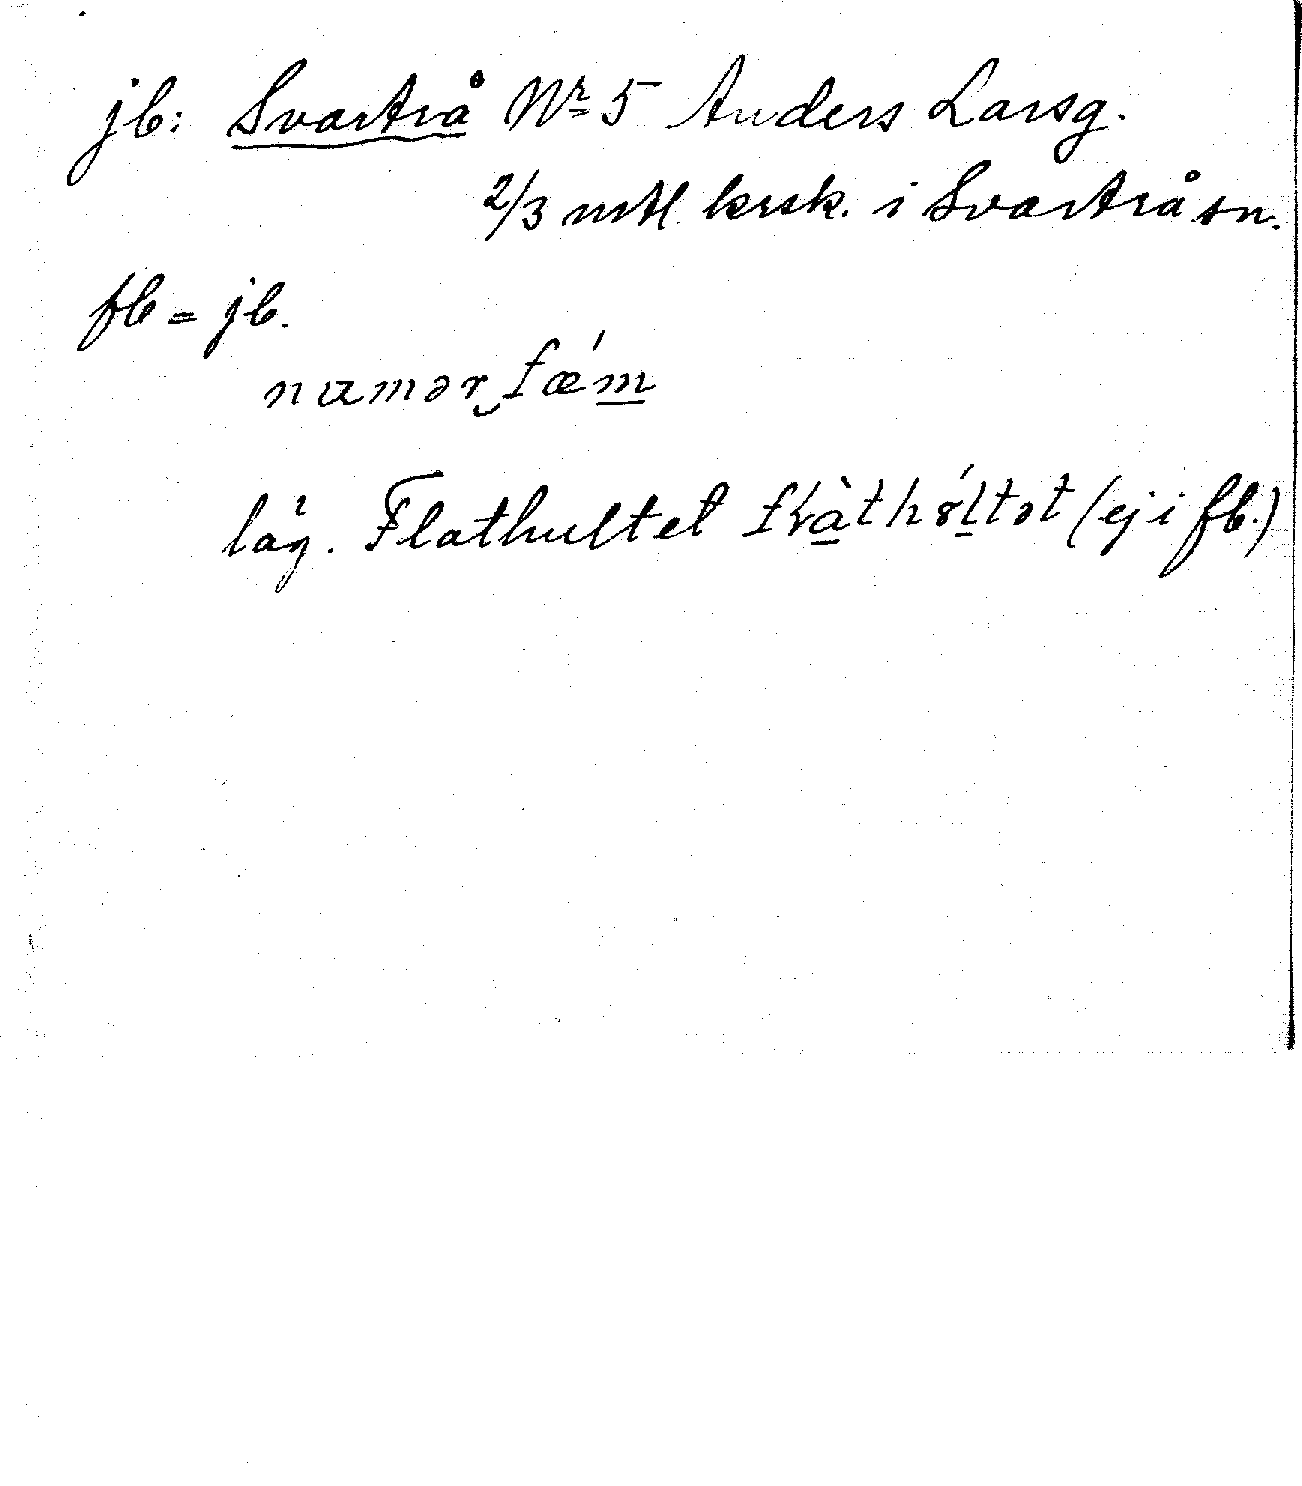 jb: Svartrå Nr 5 Anders Larsg.
2/3 mtl krsk. i Svartrå sn.
fb = jb.
numər‿fǽm
läg. Flathultet fɬàthóltət (ej i fb.)